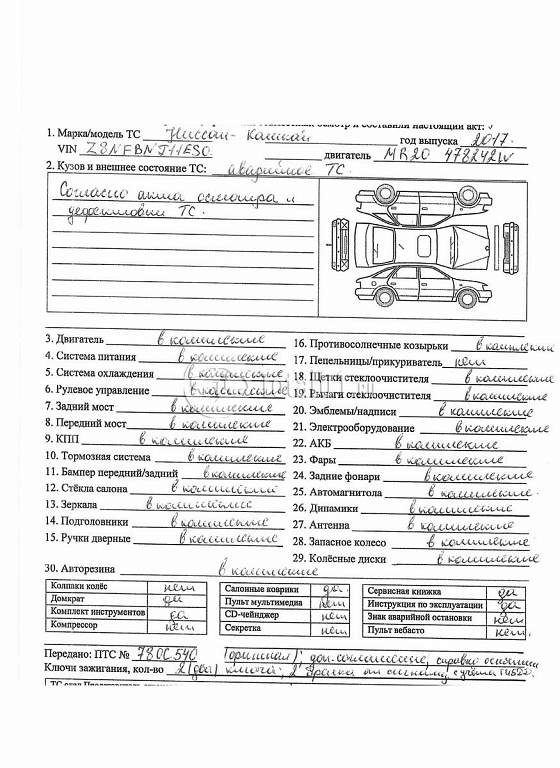 осмотр и составили настоящий акт:
1. Марка/модель ТС Ниссан-Кашкай год выпуска 2017.
VIN Z8NFBNJ11ES0 двигатель MR20 478242W
2. Кузов и внешнее состояние ТС: аварийное ТС.
Согласно акта осмотра и
дефектовки ТС.
3. Двигатель в комплекте
4. Система питания в комплекте
5. Система охлаждения в комплекте
6. Рулевое управление в комплекте
7. Задний мост в комплекте
8. Передний мост в комплекте
9. КПП в комплекте
10. Тормозная система в комплекте
11. Бампер передний/задний в комплекте
12. Стёкла салона в комплекте
13. Зеркала в комплекте
14. Подголовники в комплекте
15. Ручки дверные в комплекте
16. Противосолнечные козырьки в комплекте
17. Пепельницы/прикуриватель нет
18. Щетки стеклоочистителя в комплекте
19. Рычаги стеклоочистителя в комплекте
20. Эмблемы/надписи в комплекте
21. Электрооборудование в комплекте
22. АКБ в комплекте
23. Фары в комплекте
24. Задние фонари в комплекте
25. Автомагнитола в комплекте
26. Динамики в комплекте
27. Антенна в комплекте
28. Запасное колесо в комплекте
29. Колёсные диски в комплекте
30. Авторезина в комплекте
Колпаки колёс нет
Домкрат да
Комплект инструментов да
Компрессор нет
Салонные коврики да.
Пульт мультимедиа нет
CD-чейнджер нет
Секретка нет
Сервисная книжка да
Инструкция по эксплуатации да
Знак аварийной остановки нет
Пульт вебасто нет.
Передано: ПТС № 78ОС540 (оригинал), доп. соглашение, справка о снятии
Ключи зажигания, кол-во 2 (два) ключа; 2 с учёта